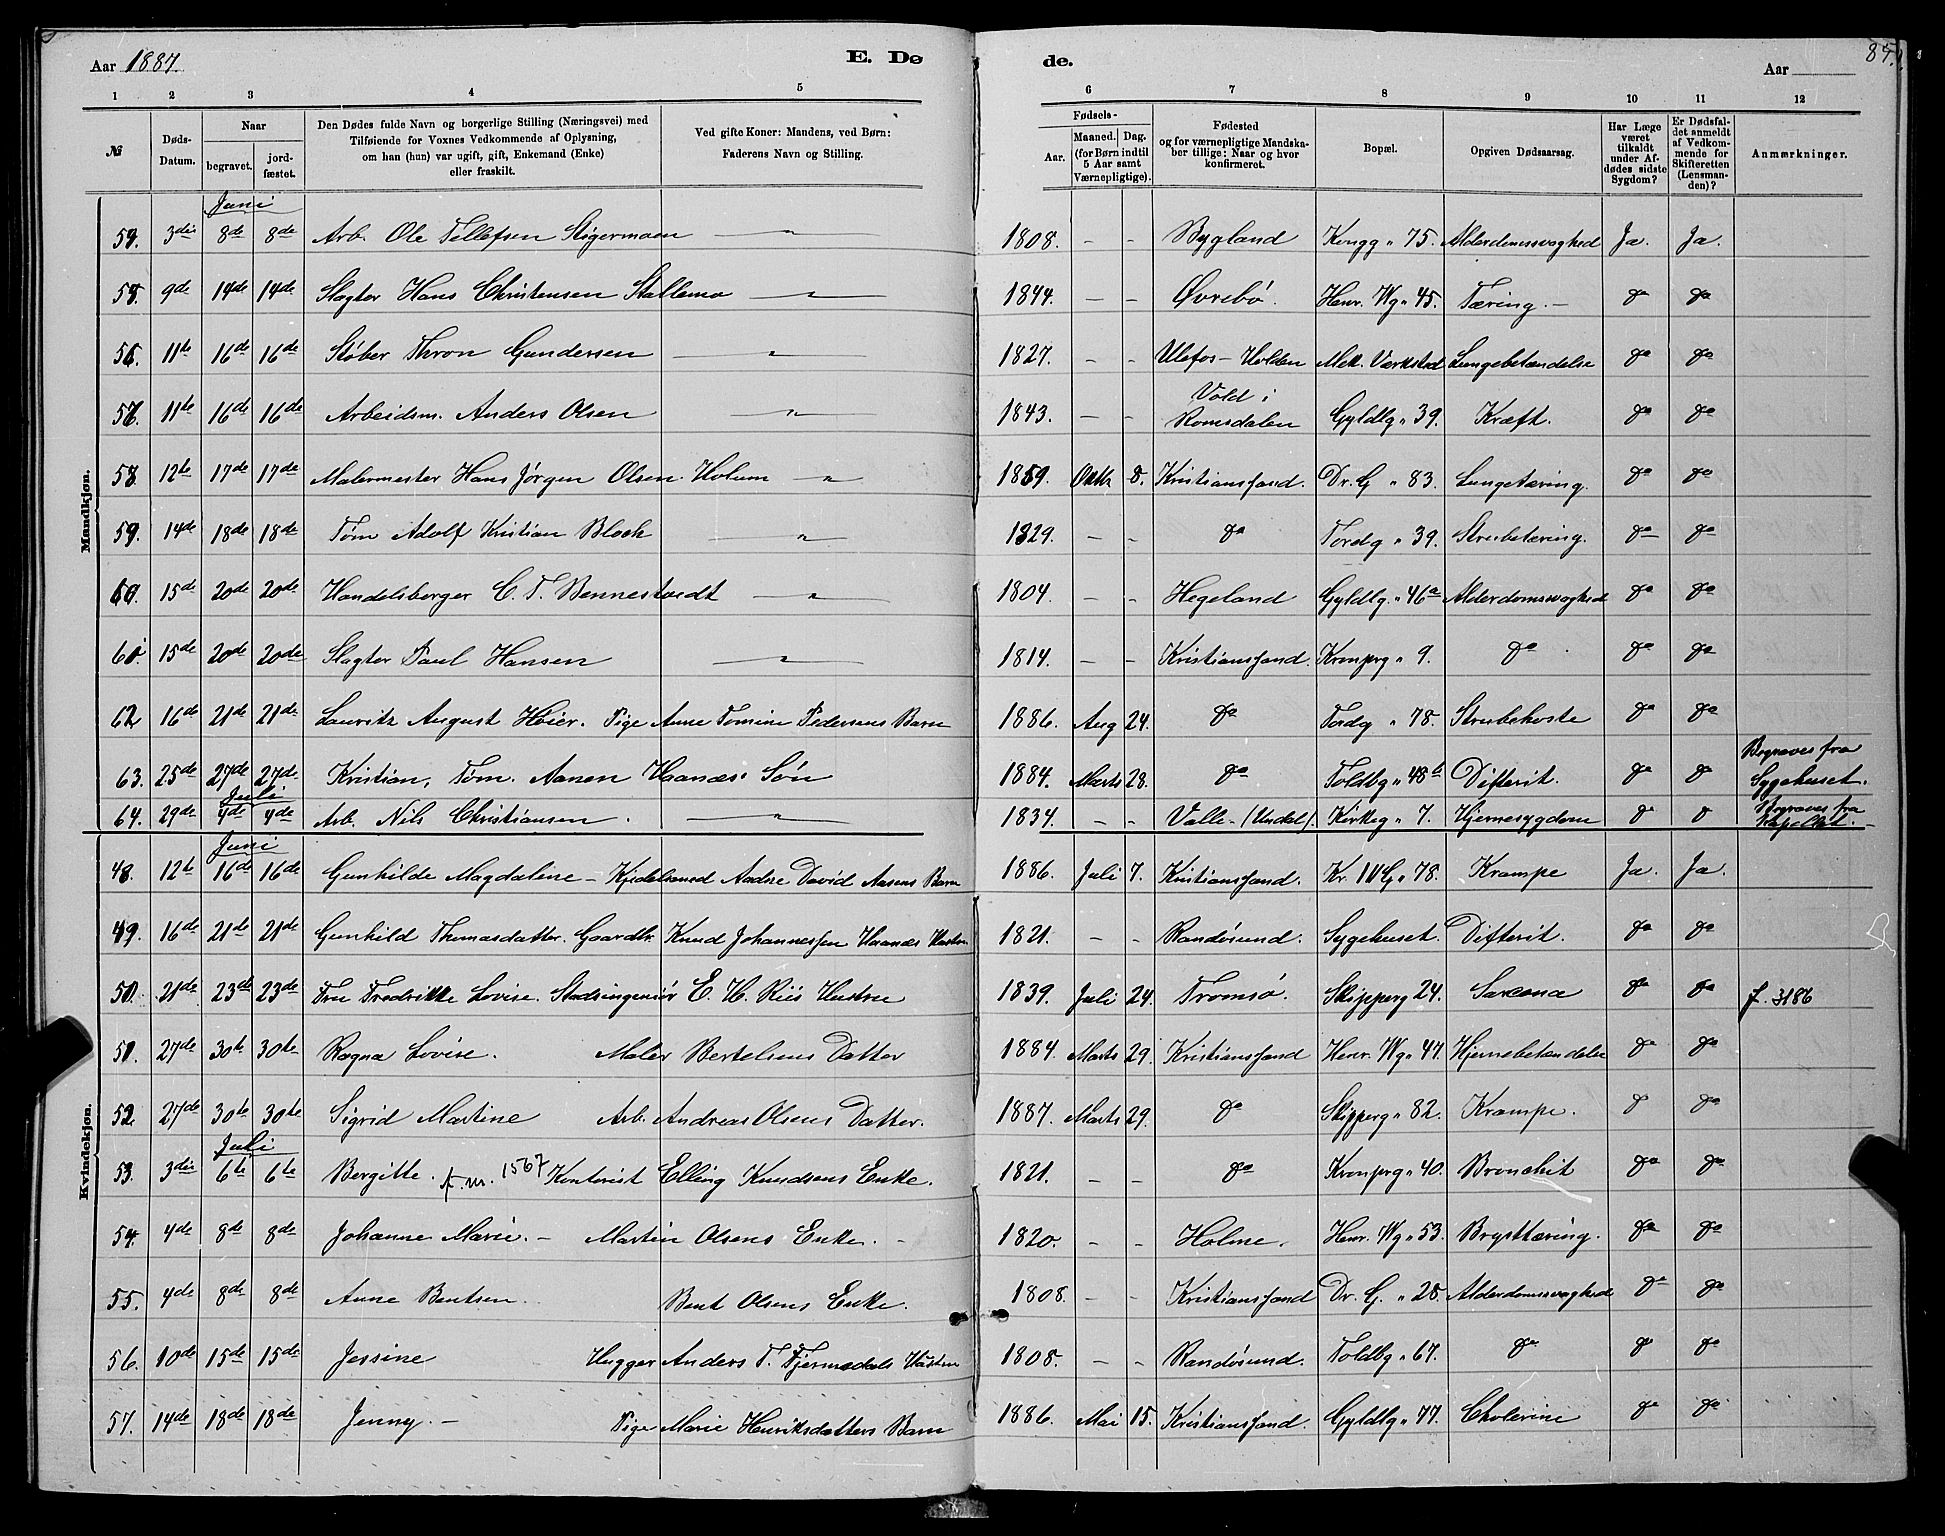 Aar 1887.
E. Dø
de.
Aar
85.
1 2 3 4 5 6 7 8 9 10 11 12
№
Døds-Datum.
Naar
begravet.
jord-fæstet.
Den Dødes fulde Navn og borgerlige Stilling (Næringsvei) med
Tilføiende for Voxnes Vedkommende af Oplysning,
om han (hun) var ugift, gift, Enkemand (Enke)
eller fraskilt.
Ved gifte Koner: Mandens, ved Børn:
Faderens Navn og Stilling.
Fødsels-
Aar.
Maaned. Dag.
(for Børn indtil
5 Aar samt
Værnepligtige).
Fødested
og for værnepligtige Mandska-
ber tillige: Naar og hvor
konfirmeret.
Bopæl.
Opgiven Dødsaarsag.
Har Læge
været
tilkaldt
under Af-
dødes sidste
Sygdom?
Er Dødsfal-
det anmeldt
af Vedkom-
mende for
Skifteretten
(Lensman-
den)?
Anmærkninger.
Mandkjøn.
Juni
54. 3die 8de 8de Arb. Ole Tellefsen Stigermoen " 1808. - - Bygland Kongg " 75. Alderdomssvaghed Ja. Ja.
55. 9de 14de 14de Slagter Hans Christensen Stallemo " 1844. - - Øvrebø. Henr. Wg " 45. Tæring. - do do
56. 11te 16de 16de Støber Thron Gundersen " 1827. - - Ulefos - Holden Mek. Værksted Lungebetændelse do do
57. 11te 16de 16de Arbeidsm. Anders Olsen " 1843. - - Vold i Romsdalen Gyldlg " 39. Kræft. do do
58. 12te 17de 17de Malermester Hans Jørgen Olsen Holum " 1859. Oktb 8. Kristianssand. Dr. G " 83. Lungetæring. do do
59. 14de 18de 18de Tøm Adolf Kristian Bloch " 1829. - - do Tordg " 39. Strubetæring. do do
60. 15de 20de 20de Handelsborger C. T. Bennestvedt " 1804. - - Hegeland Gyldlg. " 46a Alderdomssvaghed do do
61. 15de 20de 20de Slagter Paul Hansen " 1814. - - Kristianssand. Kronprg " 9. do do do
62 16de 21de 21de Lauritz August Høier. Pige Anne Tomine Pedersens Barn 1886. Aug 24. do Tordg " 78. Strubehoste do do
63. 25de 27de 27de Kristian, Tøm. Aanen Haanæs' Søn 1884. Marts 28. do Toldbg " 48b Difterit. do do Begraves fra Sygehuset.
Juli
64. 29de 4de 4de Arb. Nils Christiansen. " 1834. - - Valle - (Undal). Kirkeg " 7. Hjernesygdom do do Begraves fra Kapellet.
Kvindekjøn.
Juni
48. 12te 16de 16de Gunhilde Magdalene - Kjedelsmed Andre David Aasens Barn 1886. Juli 7. Kristianssand. Kr. IV G " 78. Krampe Ja. Ja.
49. 16de 21de 21de Gunhild Thomasdatter. Gaardbr. Knud Johannessen Haanæs Hustru 1821. - - Randøsund. Sygehuset. Difterit. do do
50. 21de 23de 23de Fru Fredrikke Lovise. Stadsingeniør E. H. Riis Hustru 1839. Juli 24. Tromsø. Skipperg 24. Sarcona do do f. 3186
51. 27de 30te 30te Ragna Lovise. Maler Bertelsens Datter 1884. Marts 29. Kristianssand Henr. Wg " 44. Hjernebetændelse do do
52. 27de 30te 30te Sigrid Martine Arb. Andreas Olsens Datter. 1887. Marts 29. do Skipperg " 82. Krampe. do do
Juli
53. 3die 6te 6te Bergitte. f.m. 1567 Kontorist Elling Knudsens Enke. 1821. - - do Kronprg " 40. Bronchit do do
54. 4de 8de 8de Johanne Marie. - Martin Olsens Enke. - 1820. - - Holme. Henr. Wg " 53. Brysttæring. do do
55. 4de 8de 8de Anne Bentsen. Bent Olsens Enke. 1808. - - Kristianssand Dr. G. " 28. Alderdomssvaghed do do
56. 10de 15de 15de Jessine Hugger Anders T. Fjermedals Hustru 1808. - - Randøsund. Toldbg " 67. do do do
57. 14de 18de 18de Jenny. - Pige Marie Henriksdatters Barn 1886. Mai 15. Kristianssand. Gyldlg " 77. Cholerine do do